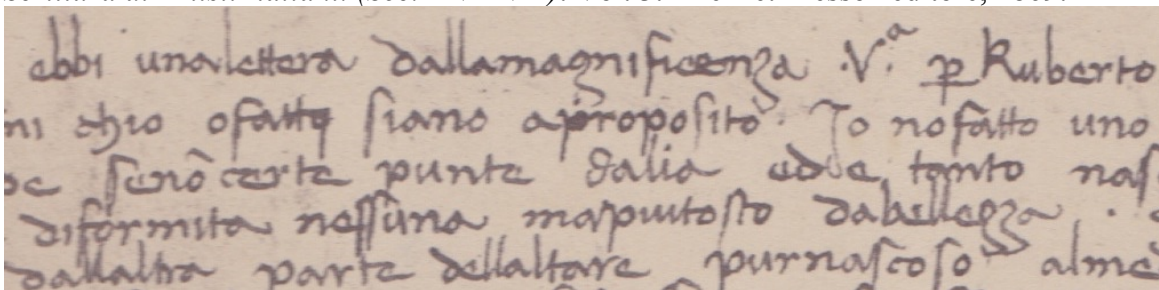 ebbi unalettera dallamagnificenza .V.ª ꝑ Ruberto
ni chio ofatte siano aproposito. Io nofatto uno
se senō certe punte dalia ede tanto nas
diformita nessuna mapiutosto dabellegza .
dallaltra parte dellaltare purnascoso alme